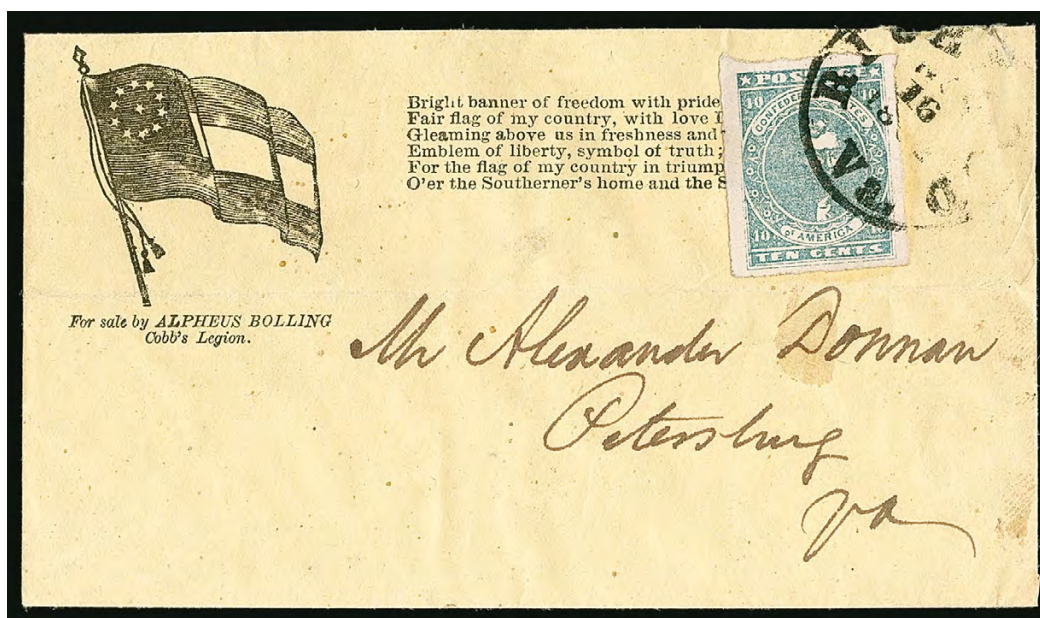 Bright banner of freedom with pride
Fair flag of my country, with love
Gleaming above us in freshness and
Emblem of liberty, symbol of truth;
For the flag of my country in triump
O'er the Southerner's home and the S
POSTAGE
10 10
CONFEDERATE STATES
of AMERICA
10 10
TEN CENTS
16
Va
For sale by ALPHEUS BOLLING
Cobb's Legion.
Mr Alexander Donnan
Petersburg
Va